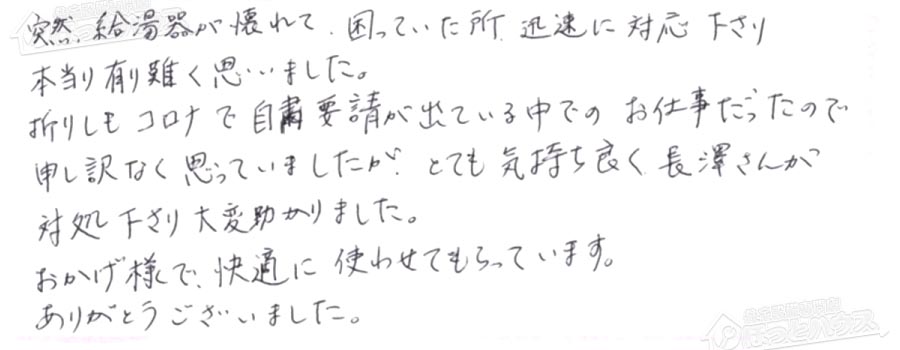 突然、給湯器が壊れて、困っていた所、迅速に対応下さり
本当り有り難く思いました。
折りしもコロナで自粛要請が出ている中でのお仕事だったので
申し訳なく思っていましたが、とても気持ち良く長澤さんが
対処下さり大変助かりました。
おかげ様で、快適に使わせてもらっています。
ありがとうございました。